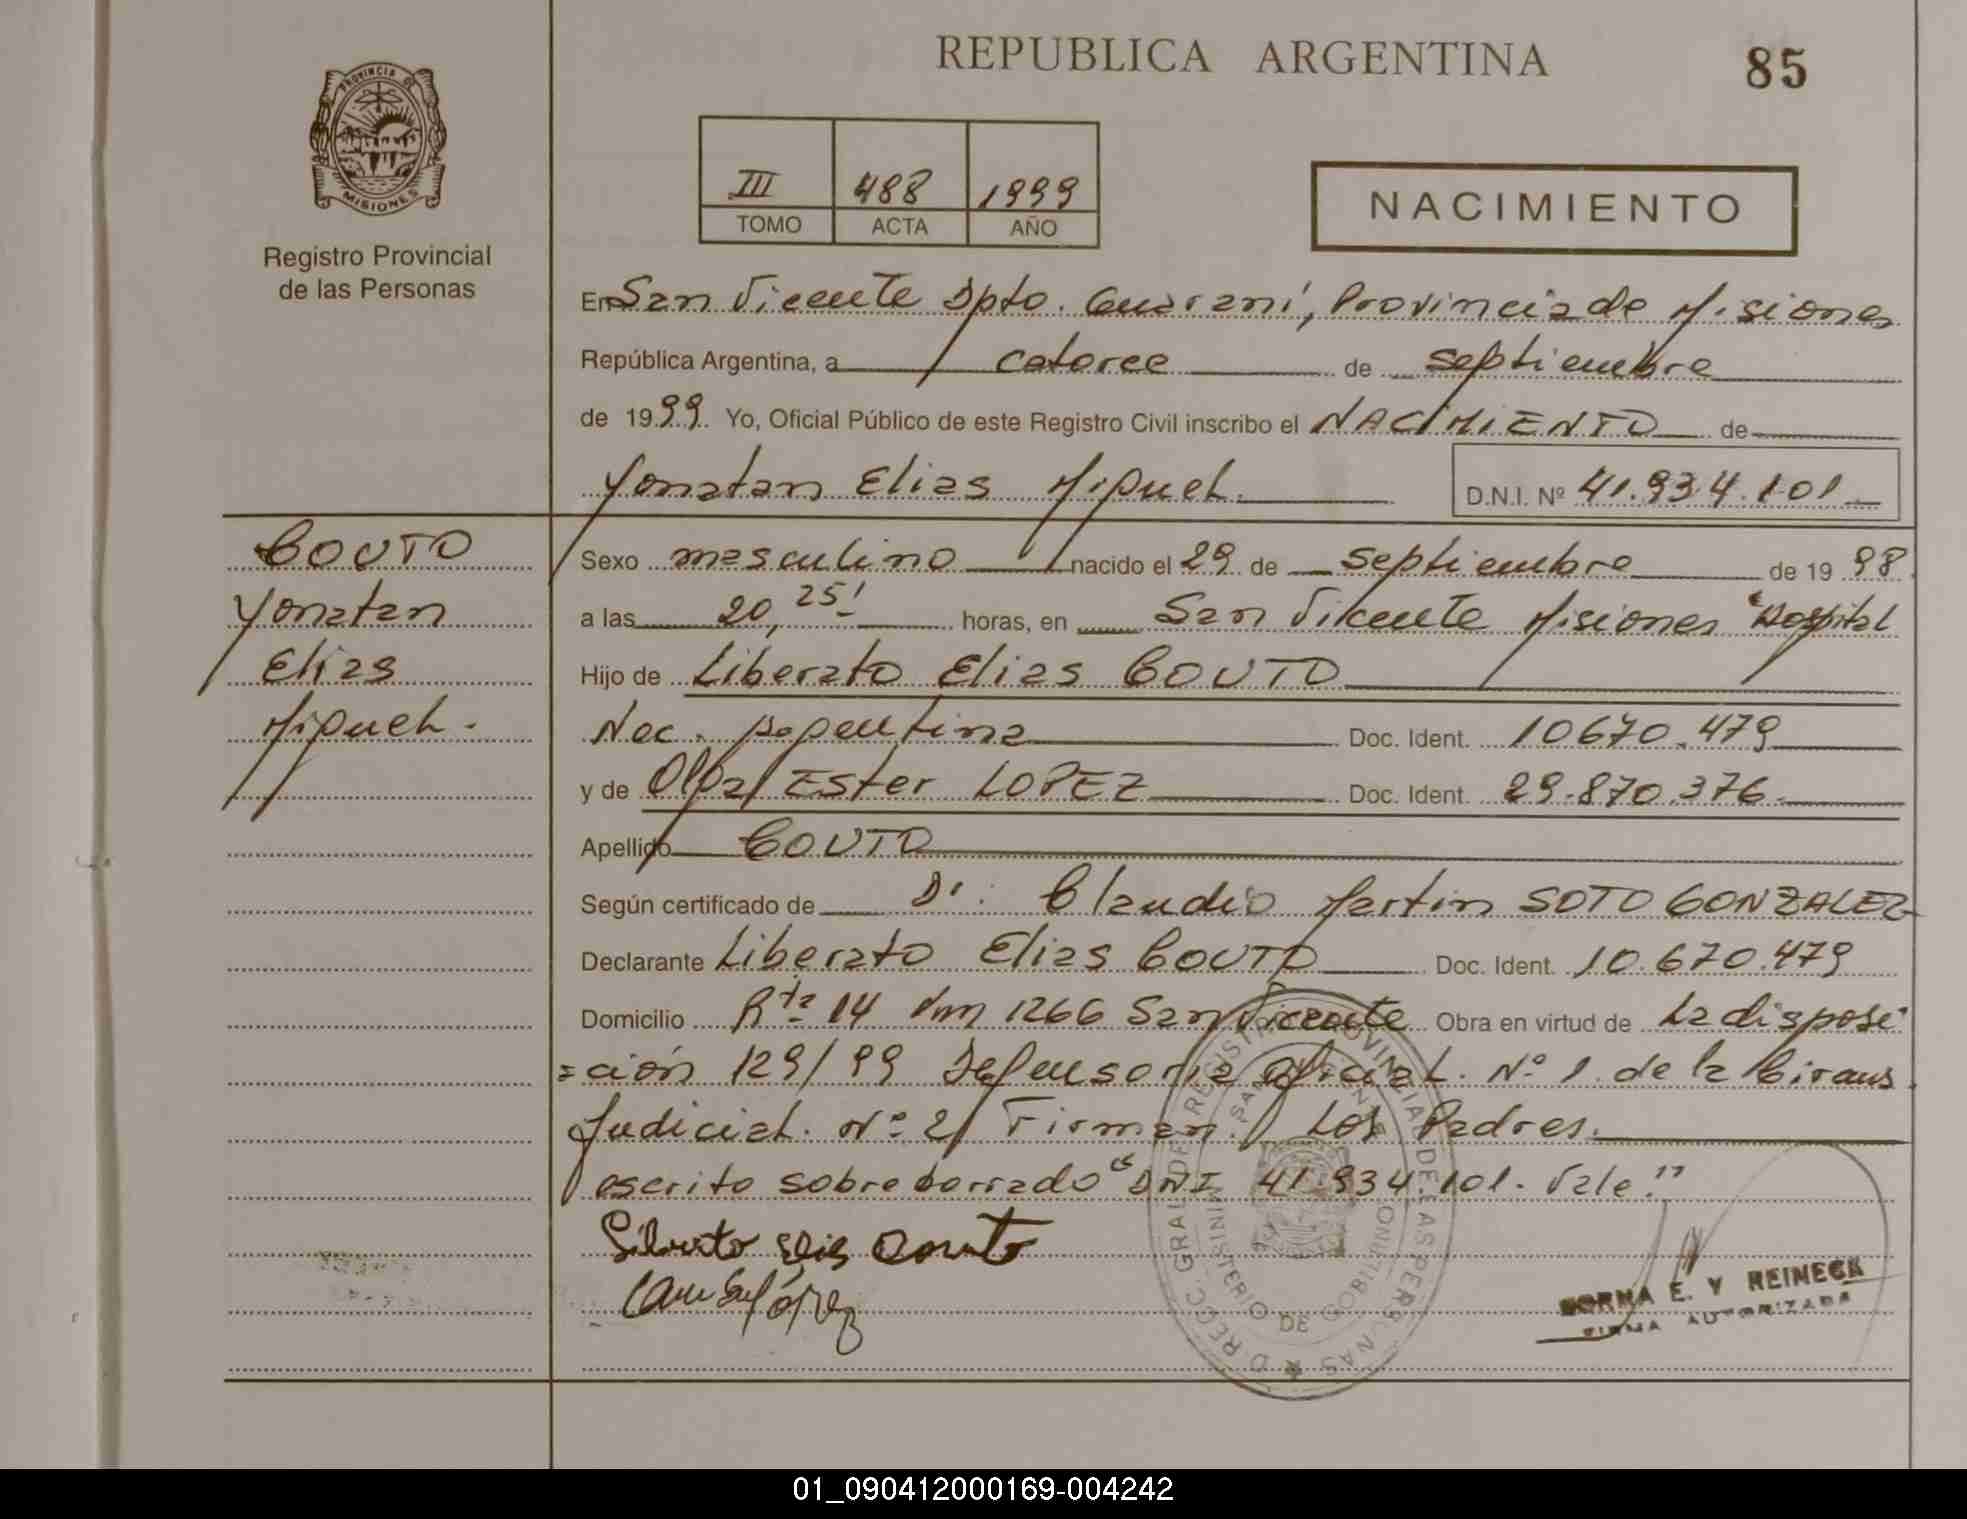 REPUBLICA ARGENTINA
85
PROVINCIA DE
MISIONES
Registro Provincial
de las Personas
III 488 1999
TOMO ACTA AÑO
NACIMIENTO
En San Vicente Dpto. Guaraní, Provincia de Misiones
República Argentina, a catorce de septiembre
de 1999. Yo, Oficial Público de este Registro Civil inscribo el NACIMIENTO de
Yonatan Elias Miguel.
D.N.I. Nº 41.934.101
COUTO
Yonatan
Elias
Miguel.
Sexo masculino nacido el 29 de septiembre de 1998.
a las 20,25' horas, en San Vicente Misiones "Hospital
Hijo de Liberato Elias COUTO
Nac. Argentina Doc. Ident. 10670.479
y de Olga Ester LOPEZ Doc. Ident. 29.870.376.
Apellido COUTO
Según certificado de Dr. Claudio Martin SOTO GONZALEZ
Declarante Liberato Elias COUTO Doc. Ident. 10.670.479
Domicilio Rta 14 Km 1266 San Vicente Obra en virtud de La disposi
=ción 129/99 Defensoria oficial. Nº 1. de la Circuns.
Judicial. Nº 2/ Firman. Los Padres.
escrito sobre borrado "DNI 41.934.101. Vale."
Couto
López
NORMA E. Y REINECK
FIRMA AUTORIZADA
MINISTERIO DE GOBIERNO
01_090412000169-004242